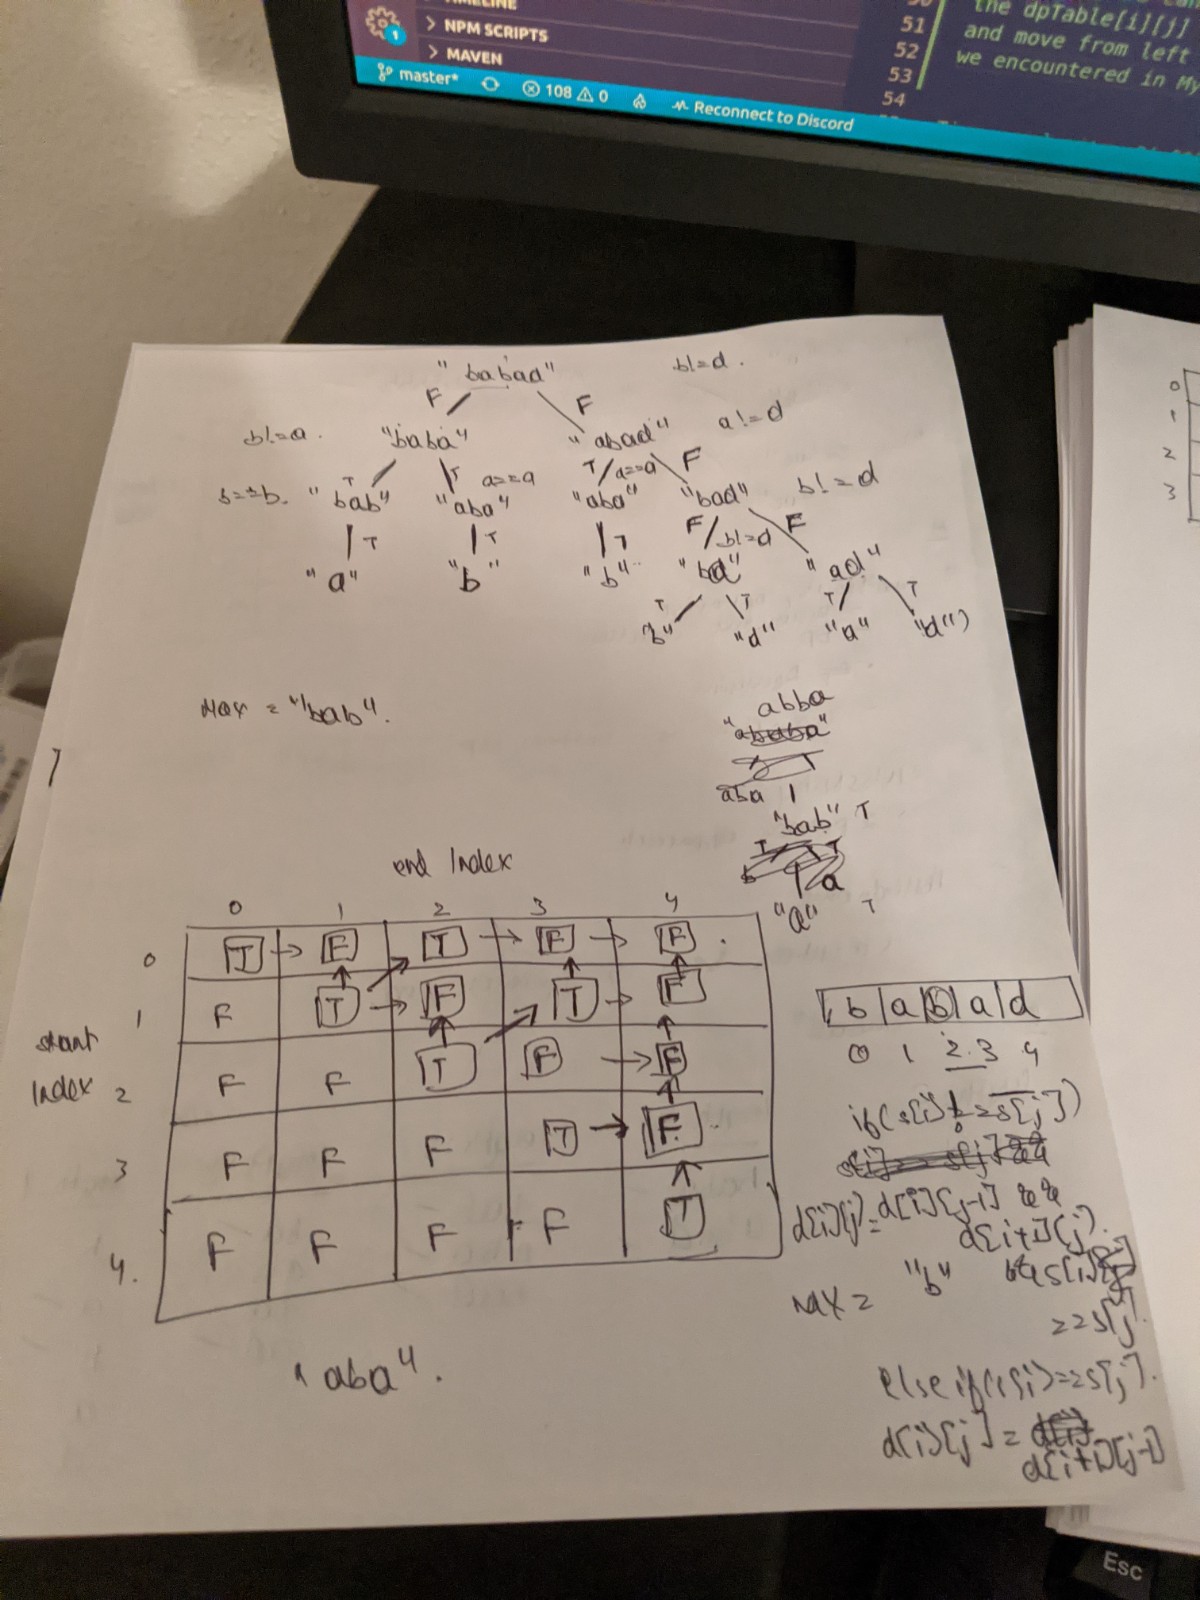 TIMELINE
> NPM SCRIPTS
> MAVEN
1
master* 108 0 Reconnect to Discord
51 the dpTable[i][j]
52 and move from left
53 we encountered in My
54
"babad" b!=d.
F F
b!=a. "baba" "abad" a!=d
T T a==a T a==a F
b==b. "bab" "aba" "aba" "bad" b!=d
T T T F b!=d F
"a" "b" "b" "ad"
T T T T
"b" "d" "a" "d"
Max = "bab".
abba
aba
"bab" T
a
"a" T
end Index
0 1 2 3 4
0 T F T F F
1 F T F T F
start
Index
2 F F T F F
3 F F F T F
4. F F F F T
b a b a d
0 1 2 3 4
if(s[i] != s[j])
d[i][j] = d[i][j-1] &&
d[i+1][j]
max = "b"
==s[j]
else if(s[i]==s[j].
d[i][j] =
d[i+1][j-1]
"aba".
0
1
2
3
Esc